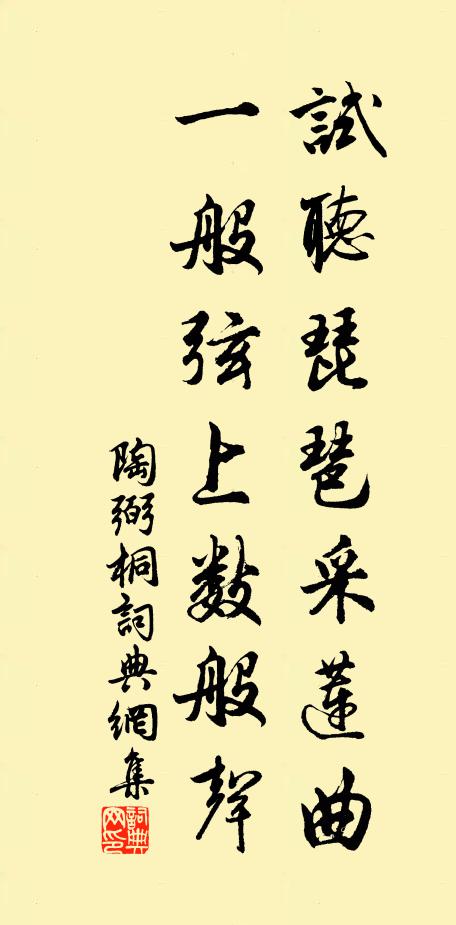 試聽琵琶采蓮曲
一般弦上数般聲
陶弼桐詞典網集
詞典网印